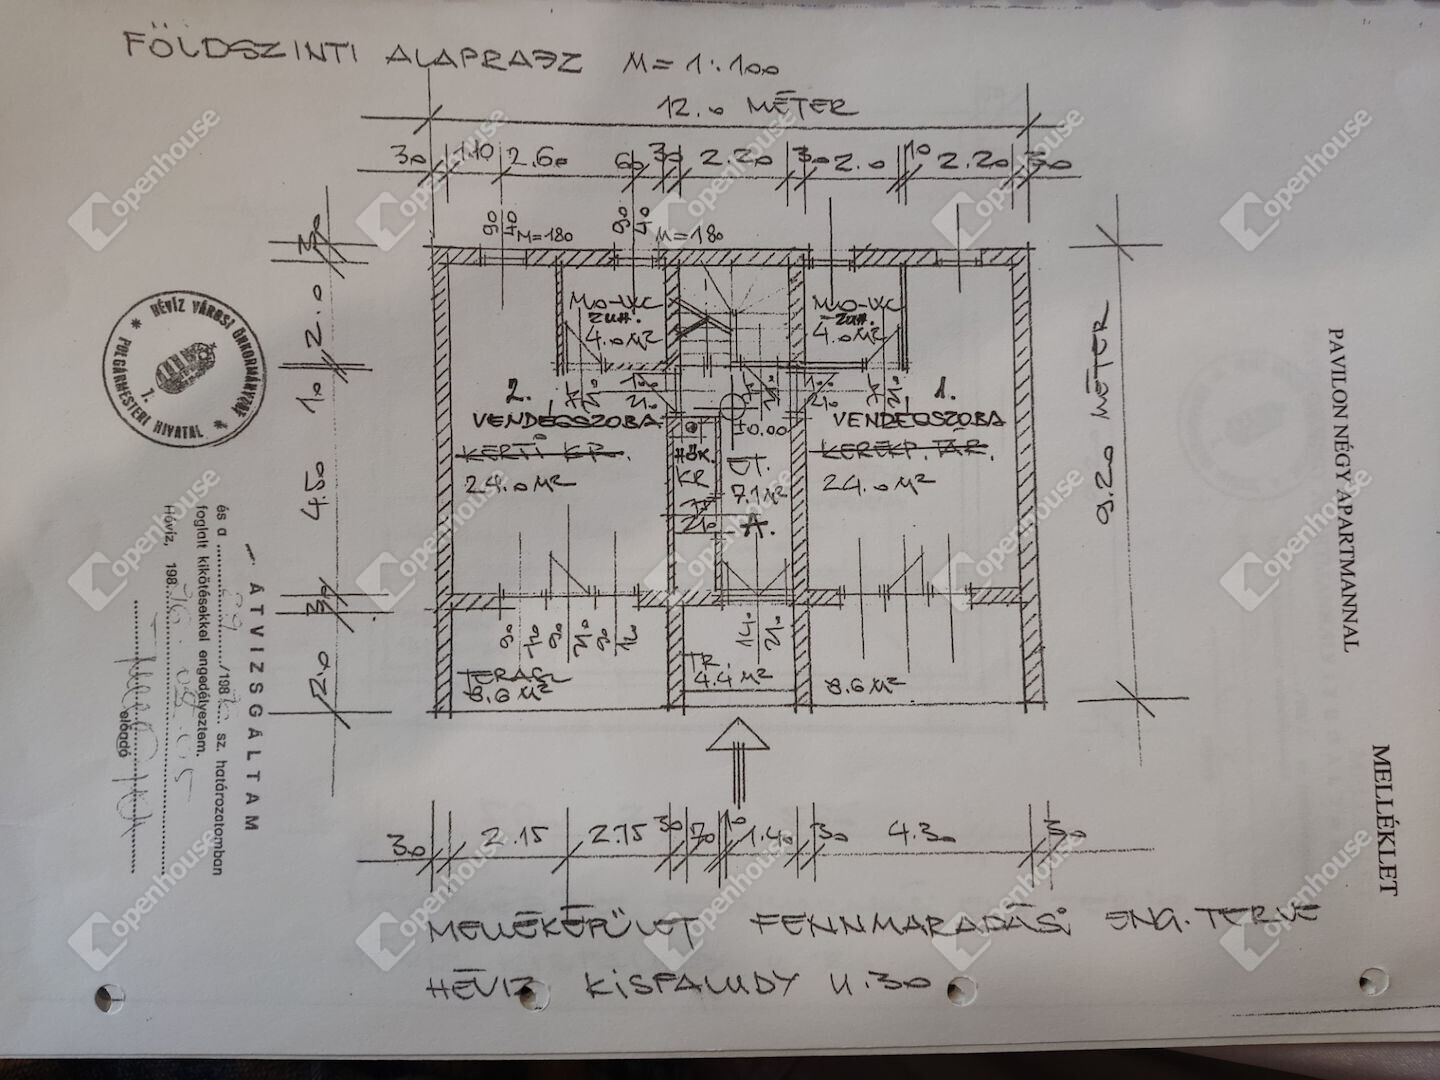 FÖLDSZINTI ALAPRAJZ M = 1:100
12.0 MÉTER
30 1.10 2.60 60 30 2.20 30 2.0 10 2.20 30
90 40 M=180
90 40 M=180
30
2.0
10
4.50
30
2.0
MO-WC
ZUH.
4.0 M²
MO-WC
ZUH.
4.0 M²
2.
VENDÉGSZOBA
KERTI KR.
24.0 M²
1.
VENDÉGSZOBA
KERÉKP. TÁR.
24.0 M²
100
210
100
210
±0.00
HŐK.
KR
70
210
ET.
7.1 M²
A.
90 120 90 210 90 120
140 210
TERASZ
8.6 M²
TR.
4.4 M²
8.6 M²
9.20 MÉTER
30 2.15 2.15 30 70 10 1.40 30 4.30 30
MELLÉKÉPÜLET FENNMARADÁSI ENG. TERVE
HÉVÍZ KISFALUDY U. 30
HÉVÍZ VÁROSI ÖNKORMÁNYZAT
POLGÁRMESTERI HIVATAL
7.
ÁTVIZSGÁLTAM
és a /198 sz. határozatomban
foglalt kikötésekkel engedélyeztem.
Hévíz, 198
előadó
PAVILON NÉGY APARTMANNAL
MELLÉKLET
Openhouse